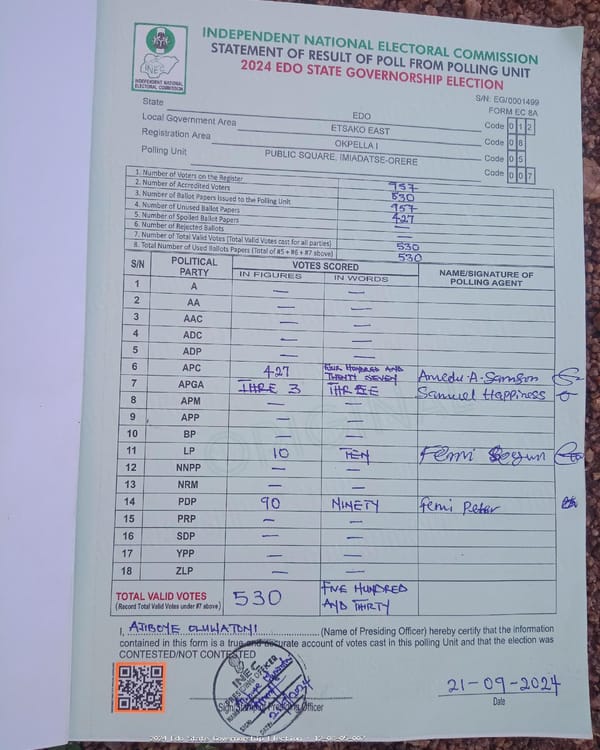 INDEPENDENT NATIONAL ELECTORAL COMMISSION
STATEMENT OF RESULT OF POLL FROM POLLING UNIT
2024 EDO STATE GOVERNORSHIP ELECTION
INEC
INDEPENDENT NATIONAL
ELECTORAL COMMISSION
S/N: EG/0001499
FORM EC 8A
State EDO Code 0 1 2
Local Government Area ETSAKO EAST Code 0 8
Registration Area OKPELLA I Code 0 5
Polling Unit PUBLIC SQUARE, IMIADATSE-ORERE Code 0 0 7
1. Number of Voters on the Register 957
2. Number of Accredited Voters 530
3. Number of Ballot Papers Issued to the Polling Unit 957
4. Number of Unused Ballot Papers 427
5. Number of Spoiled Ballot Papers —
6. Number of Rejected Ballots —
7. Number of Total Valid Votes (Total Valid Votes cast for all parties) 530
8. Total Number of Used Ballots Papers (Total of #5 + #6 + #7 above) 530
S/N POLITICAL PARTY VOTES SCORED NAME/SIGNATURE OF POLLING AGENT
IN FIGURES IN WORDS
1 A — —
2 AA — —
3 AAC — —
4 ADC — —
5 ADP — —
6 APC 427 FOUR HUNDRED AND TWENTY SEVEN Amedu A. Samson
7 APGA THRE 3 THREE Samuel Happiness
8 APM — —
9 APP — —
10 BP — —
11 LP 10 TEN Femi Segun
12 NNPP — —
13 NRM — —
14 PDP 90 NINETY Femi Peter
15 PRP — —
16 SDP — —
17 YPP — —
18 ZLP — —
TOTAL VALID VOTES 530 FIVE HUNDRED AND THIRTY
(Record Total Valid Votes under #7 above)
I, AJIBOYE OLUWATONI (Name of Presiding Officer) hereby certify that the information
contained in this form is a true and accurate account of votes cast in this polling Unit and that the election was
CONTESTED/NOT CONTESTED
INEC
PRESIDING OFFICER
21-09-2024
Presiding Officer
Date
2024 Edo State Governorship Election - 12-08-05-007